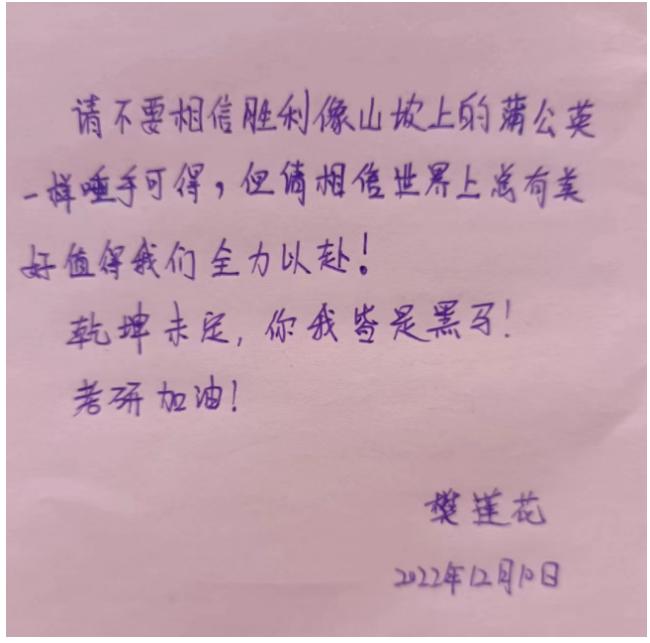 请不要相信胜利像山坡上的蒲公英
一样唾手可得，但请相信世界上总有美
好值得我们全力以赴！
乾坤未定，你我皆是黑马！
考研加油！
樊莲花
2022年12月10日